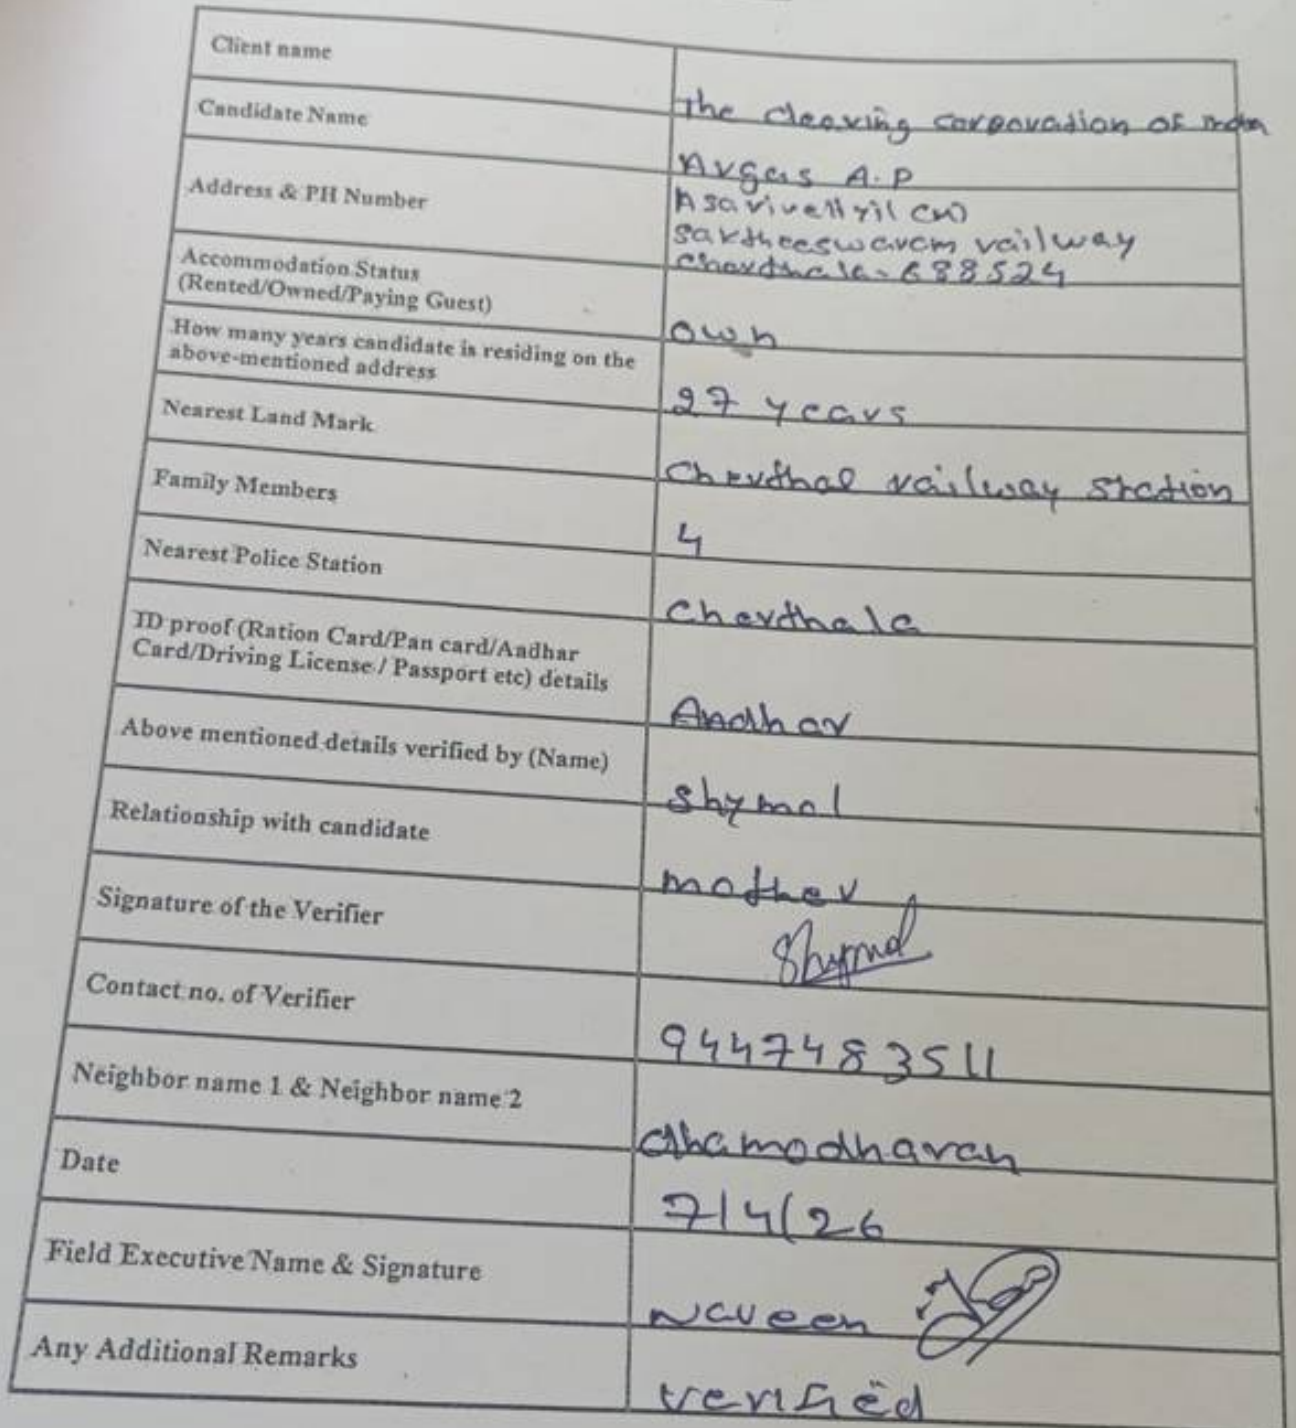 Client name
The clearing corporation of India
Candidate Name
Argas A.P
Address & PH Number
Asarivellyil (H)
sastheeswaram railway
Charthala - 688524
Accommodation Status
(Rented/Owned/Paying Guest)
own
How many years candidate is residing on the
above-mentioned address
27 years
Nearest Land Mark
Cherthal railway station
Family Members
4
Nearest Police Station
Cherthala
ID proof (Ration Card/Pan card/Aadhar
Card/Driving License / Passport etc) details
Aadhar
Above mentioned details verified by (Name)
Shymol
Relationship with candidate
mother
Signature of the Verifier
Shymol
Contact no. of Verifier
9447483511
Neighbor name 1 & Neighbor name 2
dhamodharan
Date
7/4/26
Field Executive Name & Signature
Naveen
Any Additional Remarks
verified